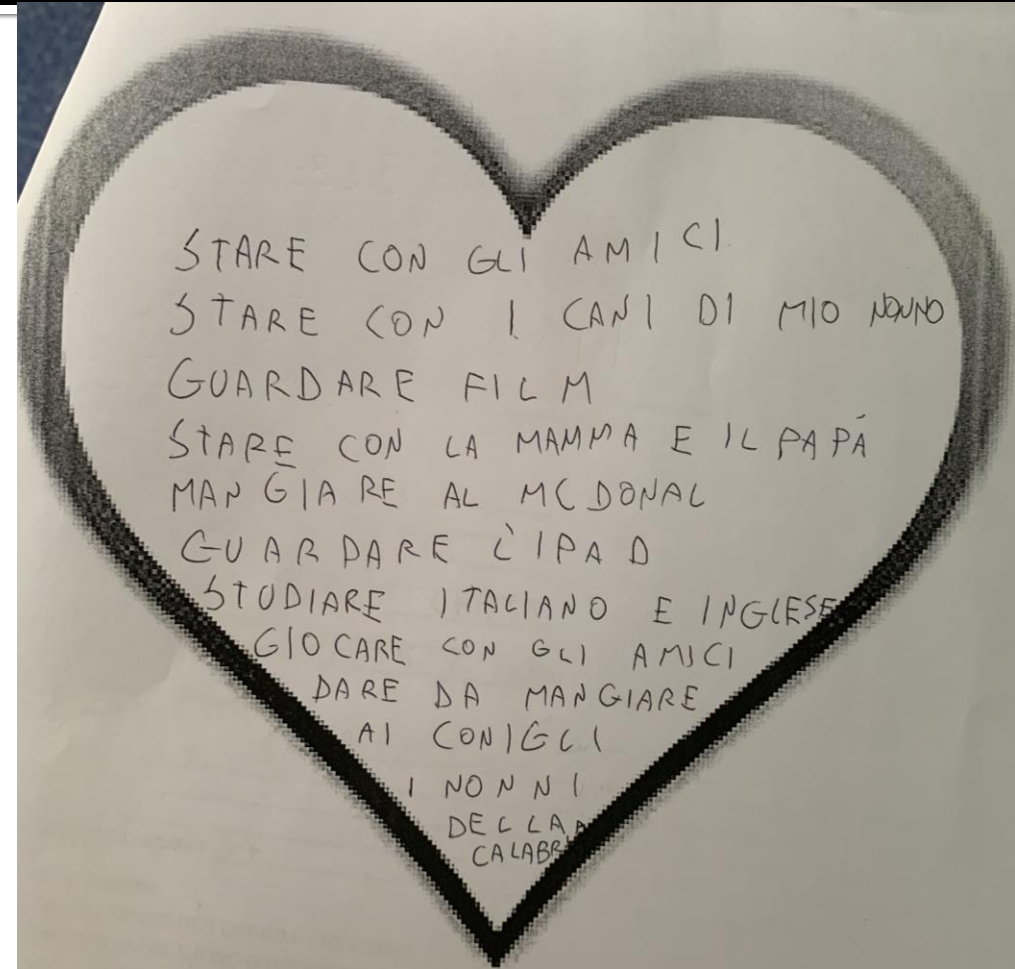 STARE CON GLI AMICI
STARE CON I CANI DI MIO NONNO
GUARDARE FILM
STARE CON LA MAMMA E IL PAPÀ
MANGIARE AL MCDONAL
GUARDARE L'IPAD
STUDIARE ITALIANO E INGLESE
GIOCARE CON GLI AMICI
DARE DA MANGIARE
AI CONIGLI
I NONNI
DELLA
CALABR